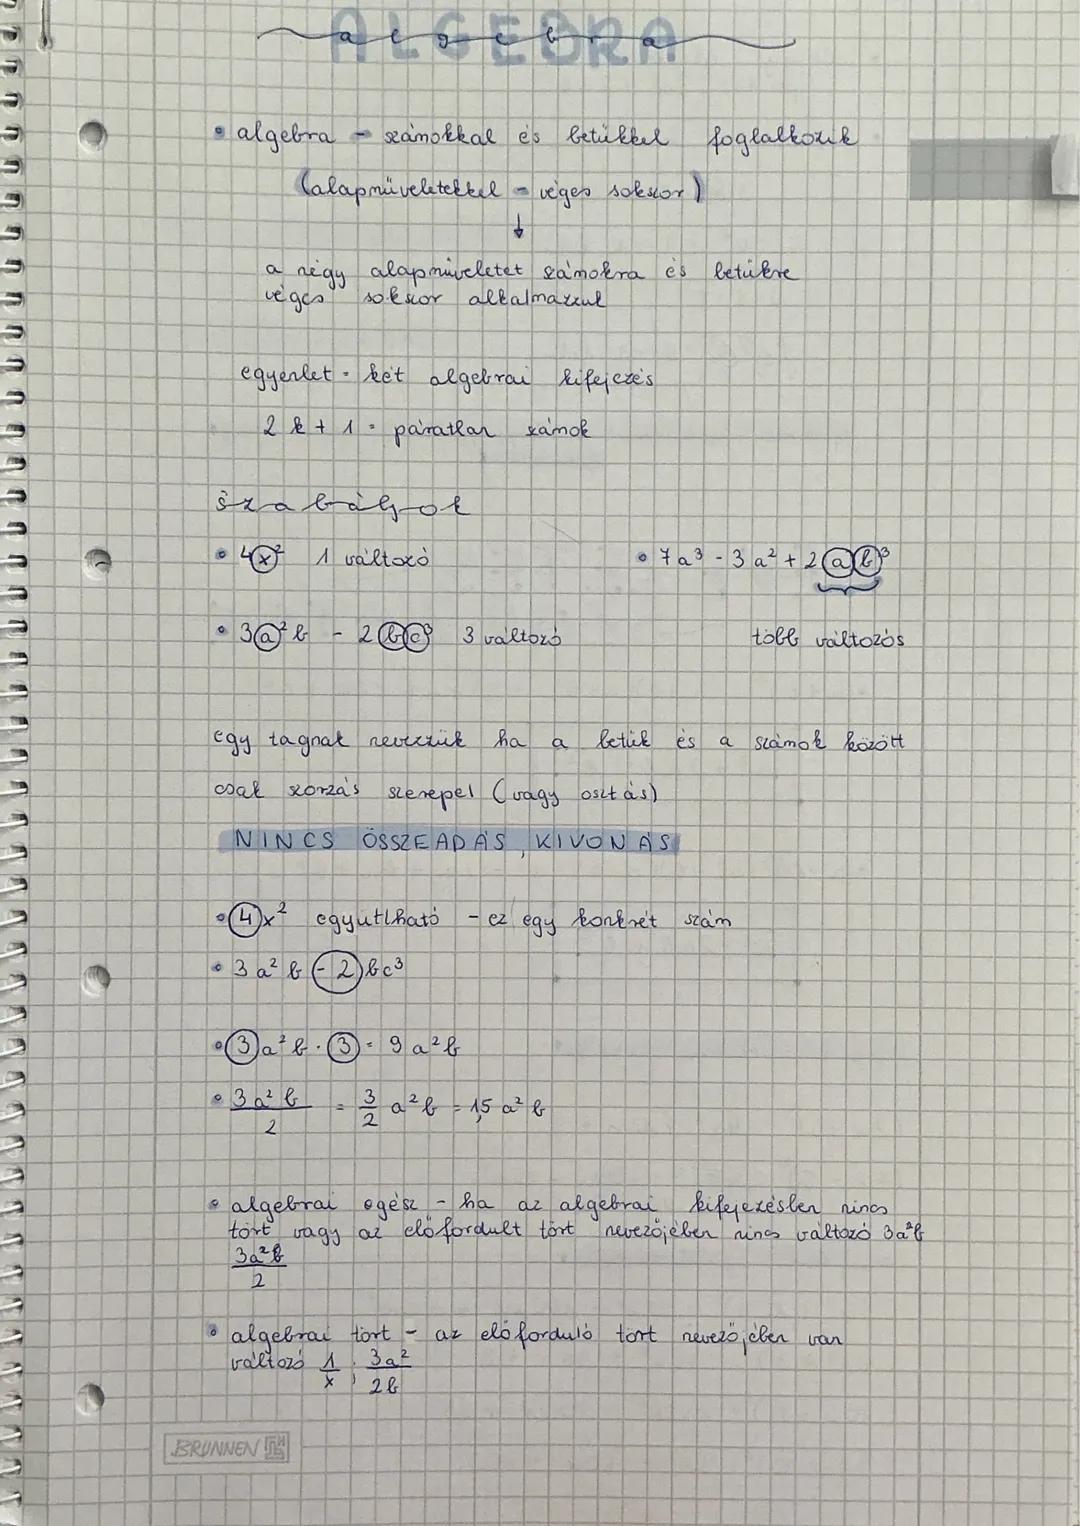 ALGEBRA
algebra
• algebra - számokkal és betűkkel foglalkozik
(alapműveletekkel - véges sokszor)
↓
a négy alapműveletet számokra és betűkre
véges sokszor alkalmazzuk
egyenlet - két algebrai kifejezés
2k + 1 = páratlan számok
szabályok
• 4x² 1 változó
• 7a³ - 3a² + 2ab³
• 3a²b - 2bc³ 3 változó
több változós
egy tagnak nevezzük ha a betűk és a számok között
csak szorzás szerepel (vagy osztás)
NINCS ÖSSZEADÁS, KIVONÁS
• 4x² együttható - ez egy konkrét szám
• 3a²b - 2bc³
• 3a²b · 3 = 9a²b
• 3a²b/2 = 3/2 a²b = 1,5 a²b
• algebrai egész - ha az algebrai kifejezésben nincs
tört vagy az előfordult tört nevezőjében nincs változó 3a²b
3a²b/2
• algebrai tört - az előforduló tört nevezőjében van
változó 1/x ; 3a²/2b
BRUNNEN